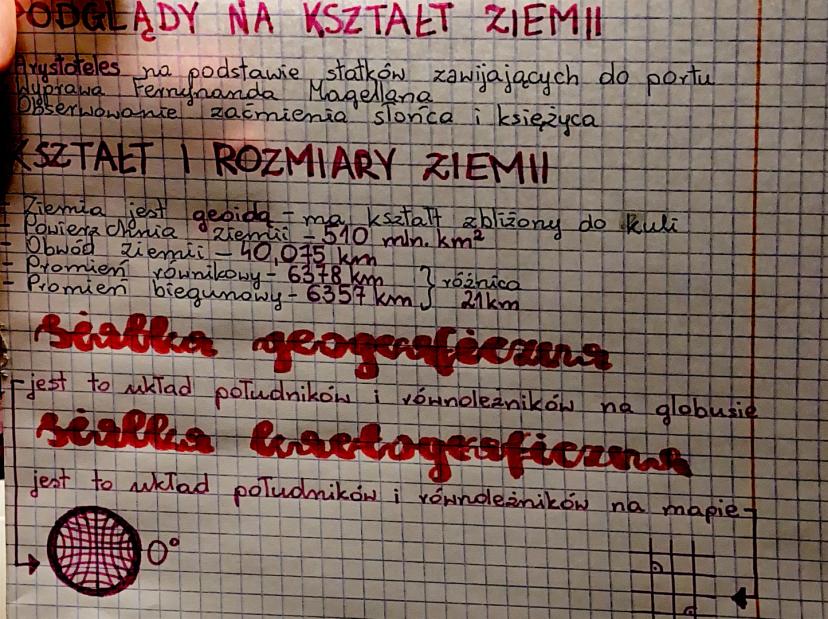 PODGLĄDY NA KSZTAŁT ZIEMII
Arystoteles na podstawie statków zawijających do portu
Wyprawa Ferdynanda Magellana
Obserwowanie zaćmienia słońca i księżyca
KSZTAŁT I ROZMIARY ZIEMII
- Ziemia jest geoidą - ma kształt zbliżony do kuli
- Powierzchnia ziemii - 510 mln. km²
- Obwód ziemii - 40,075 km
- Promień równikowy - 6378 km } różnica
- Promień biegunowy - 6357 km } 21km
siatka geograficzna
- jest to układ południków i równoleżników na globusie
siatka kartograficzna
jest to układ południków i równoleżników na mapie -
0°